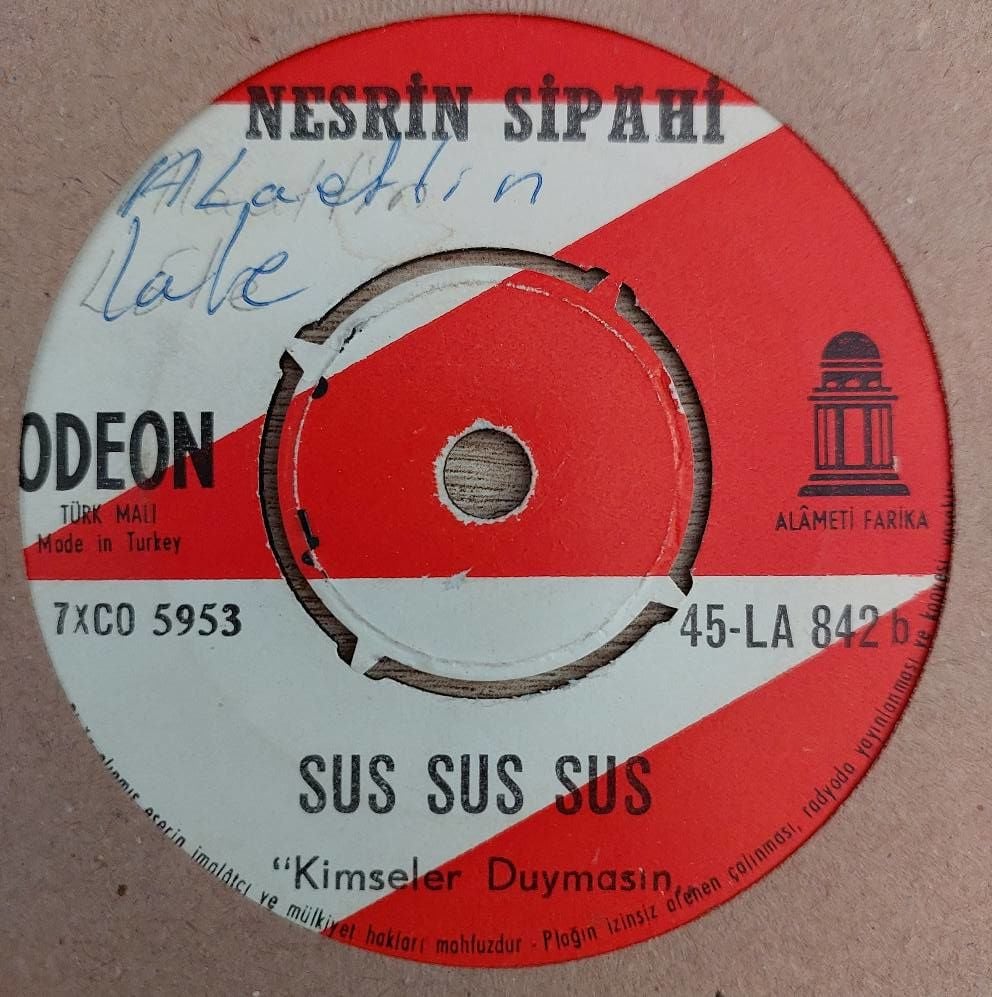 NESRİN SİPAHİ
Alaettin
Lale
ODEON
TÜRK MALI
Made in Turkey
ALÂMETİ FARİKA
7XCO 5953
45-LA 842 b
SUS SUS SUS
"Kimseler Duymasın„
eserin imalâtcı ve mülkiyet hakları mahfuzdur - Plağın izinsiz çalınması, radyoda yayınlanması ve